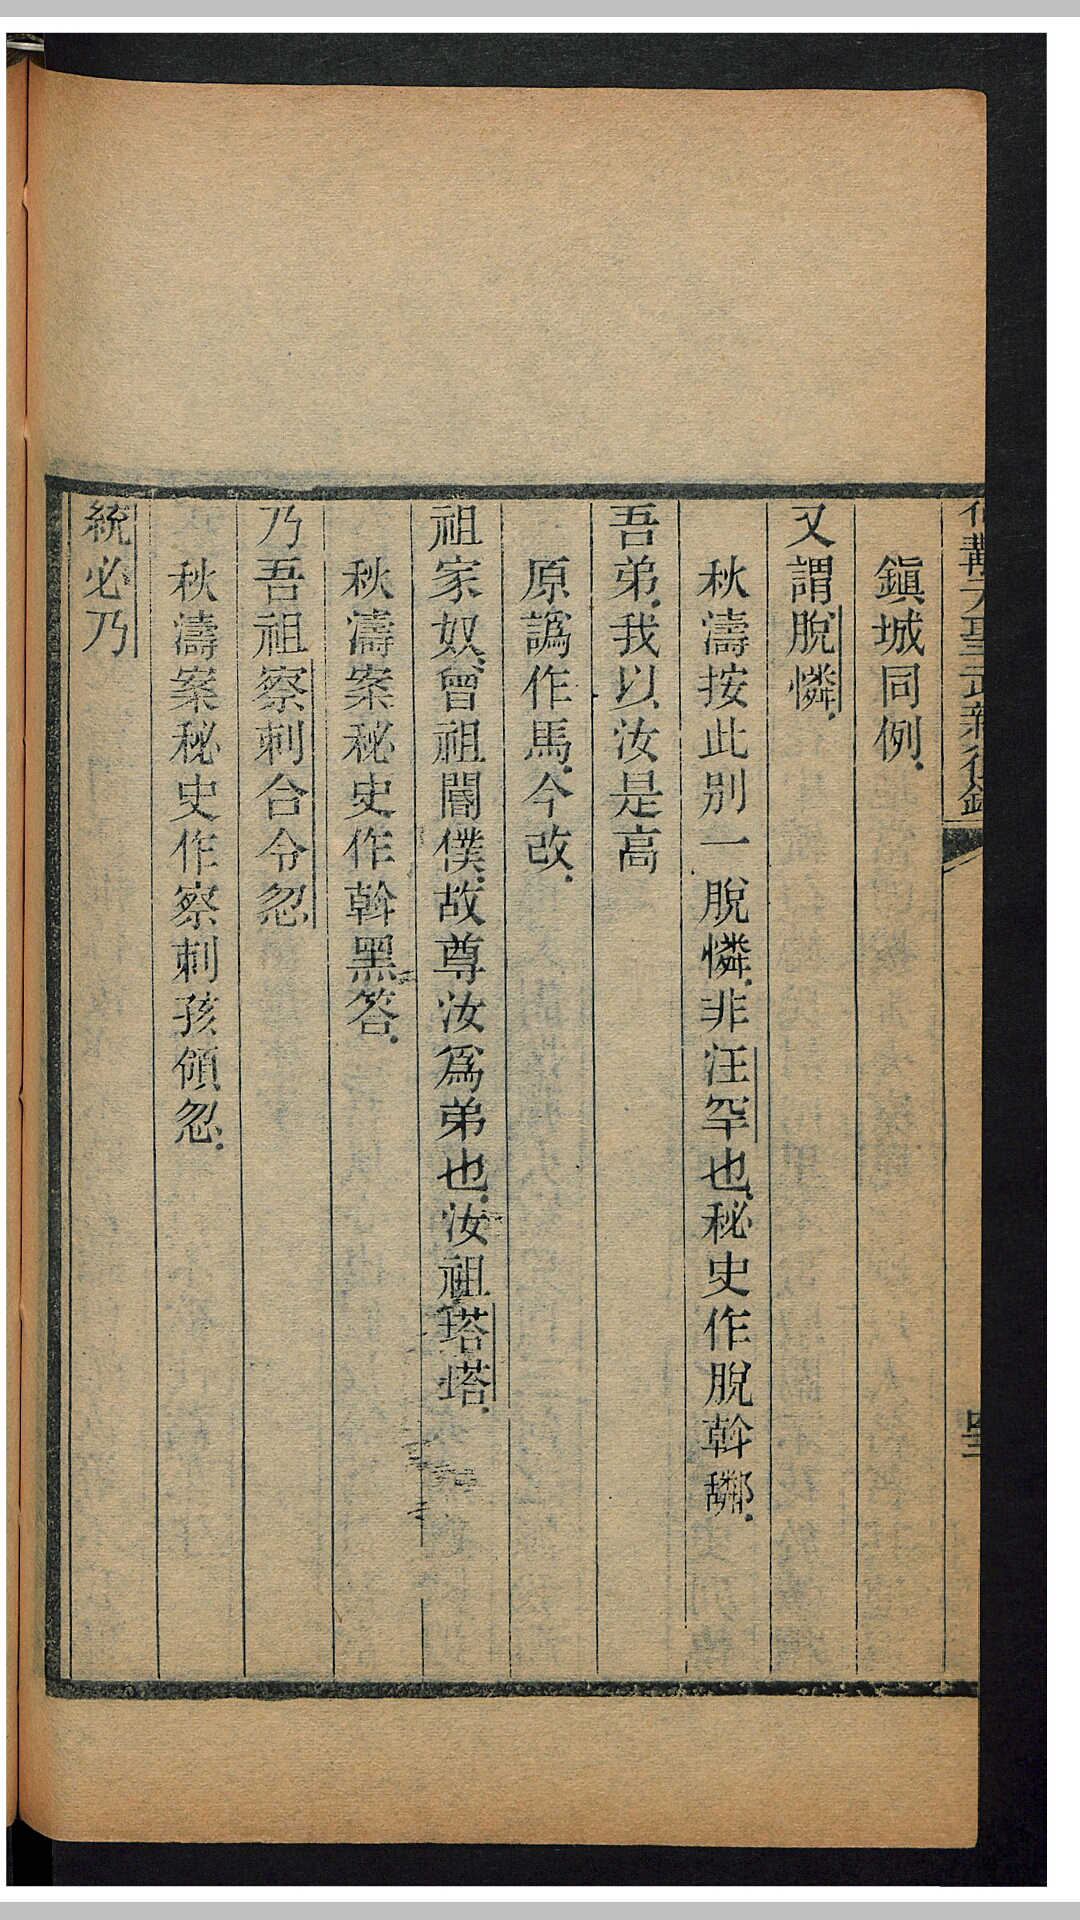 鎭城同例.
又謂脫憐.
秋濤按此別一脫憐.非汪罕也.秘史作脫斡鄰.
吾弟.我以汝是高
原譌作馬.今改.
祖家奴.曾祖閽僕.故尊汝爲弟也.汝祖塔塔.
秋濤案秘史作斡黑答.
乃吾祖察剌合令忽
秋濤案秘史作察剌孩領忽.
統必乃